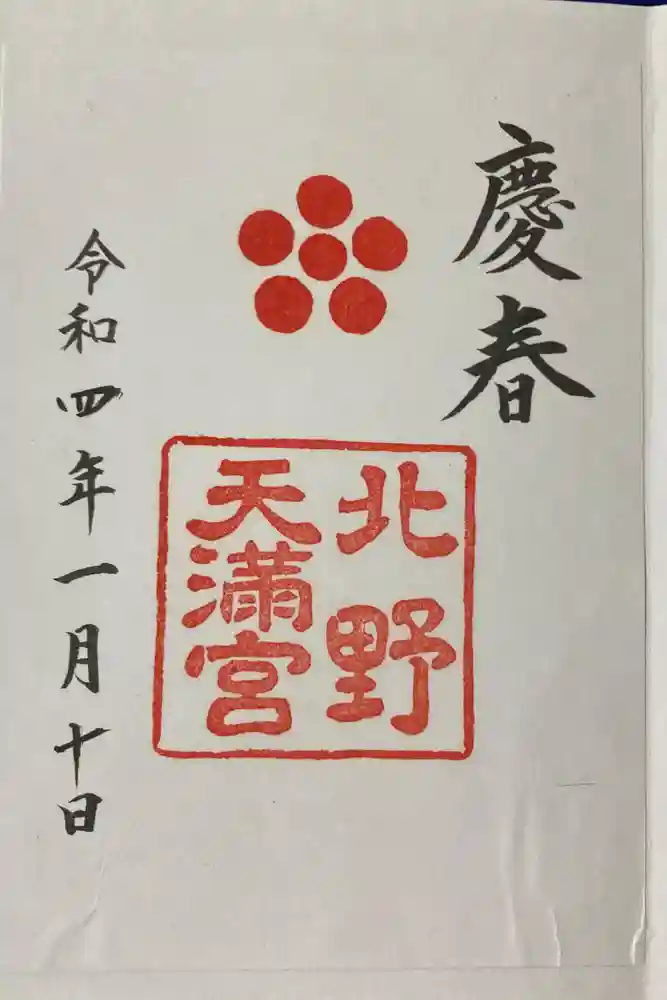 慶春
北野
天満宮
令和四年一月十日